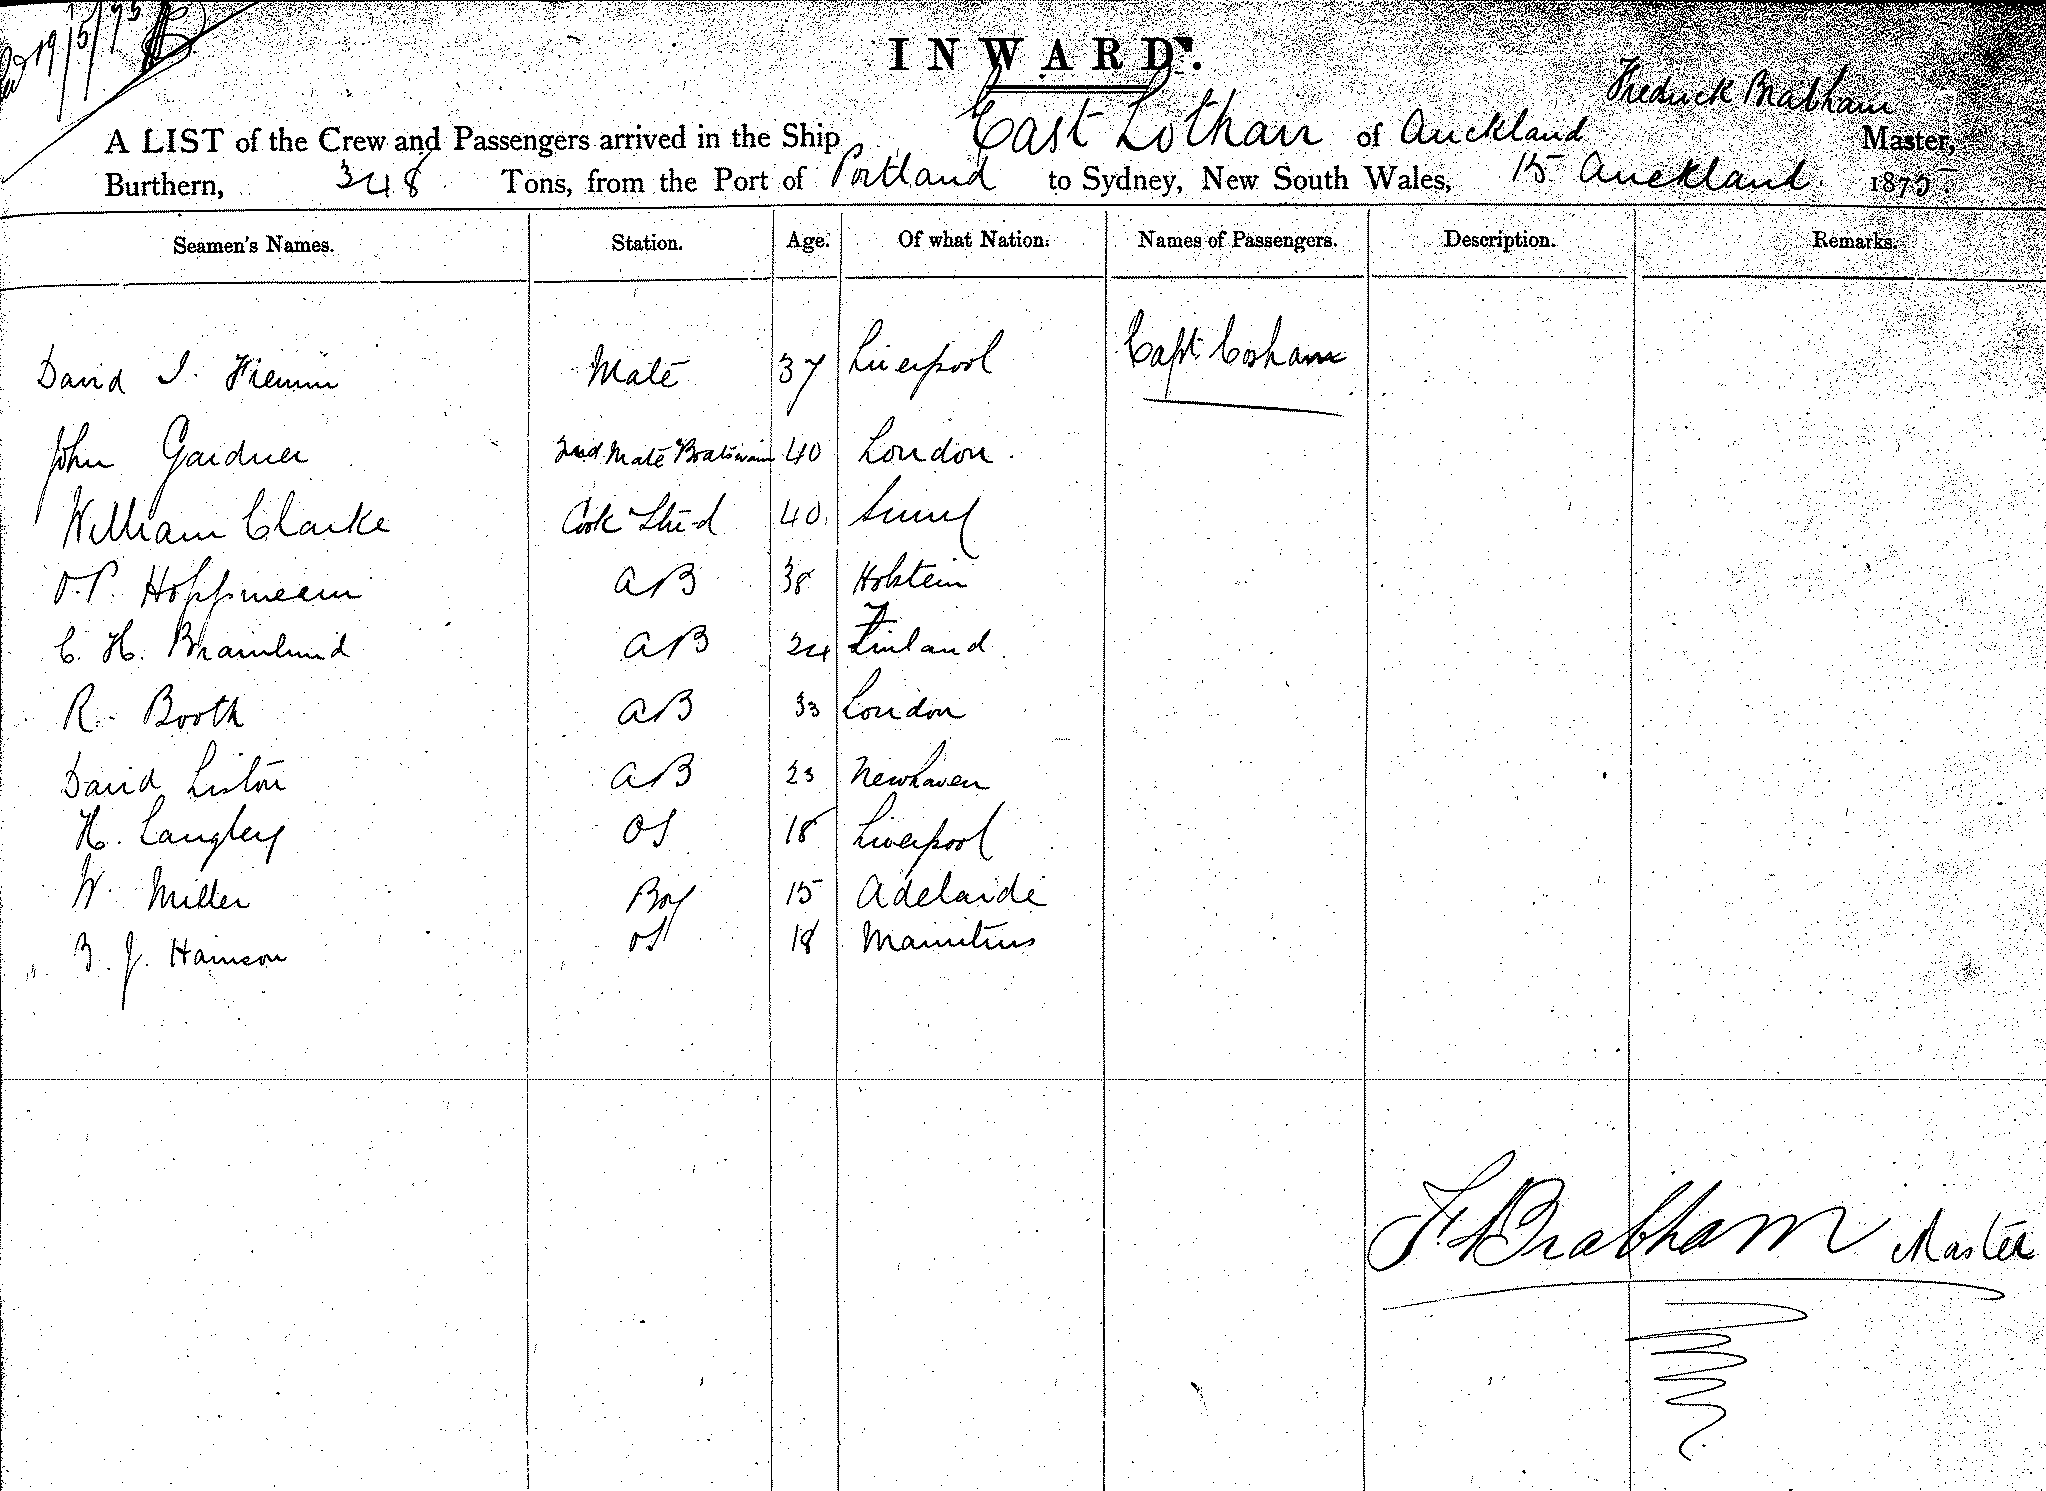 19/5/75
INWARD.
Fredrick Brabham
A LIST of the Crew and Passengers arrived in the Ship East Lothian of Auckland Master,
Burthern, 348 Tons, from the Port of Portland to Sydney, New South Wales, 15 Auckland 1875
Seamen's Names. Station. Age. Of what Nation. Names of Passengers. Description. Remarks.
David Mate 37 Liverpool Capt Cosham
John Gardner 2nd Mate Boatswain 40 London
William Clarke Cook Stud 40 Surrey
O.P. 38 Holstein
C. H. AB 24 Finland
R. Booth AB 33 London
David Liston AB 23 Newhaven
H. Langley OS 18 Liverpool
W. Miller Boy 15 Adelaide
B. J. Harrison OS 18 Mauritius
F Brabham Master